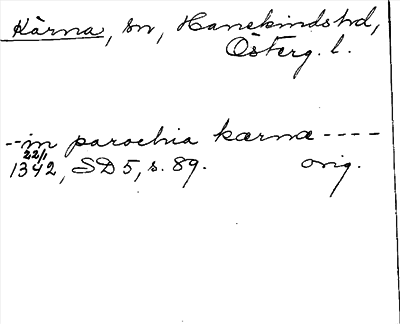 Kärna, sn, Hanekindshd,
Österg. l.
--in parochia kærnæ ----
22/1
1342, SD 5, s. 89. orig.